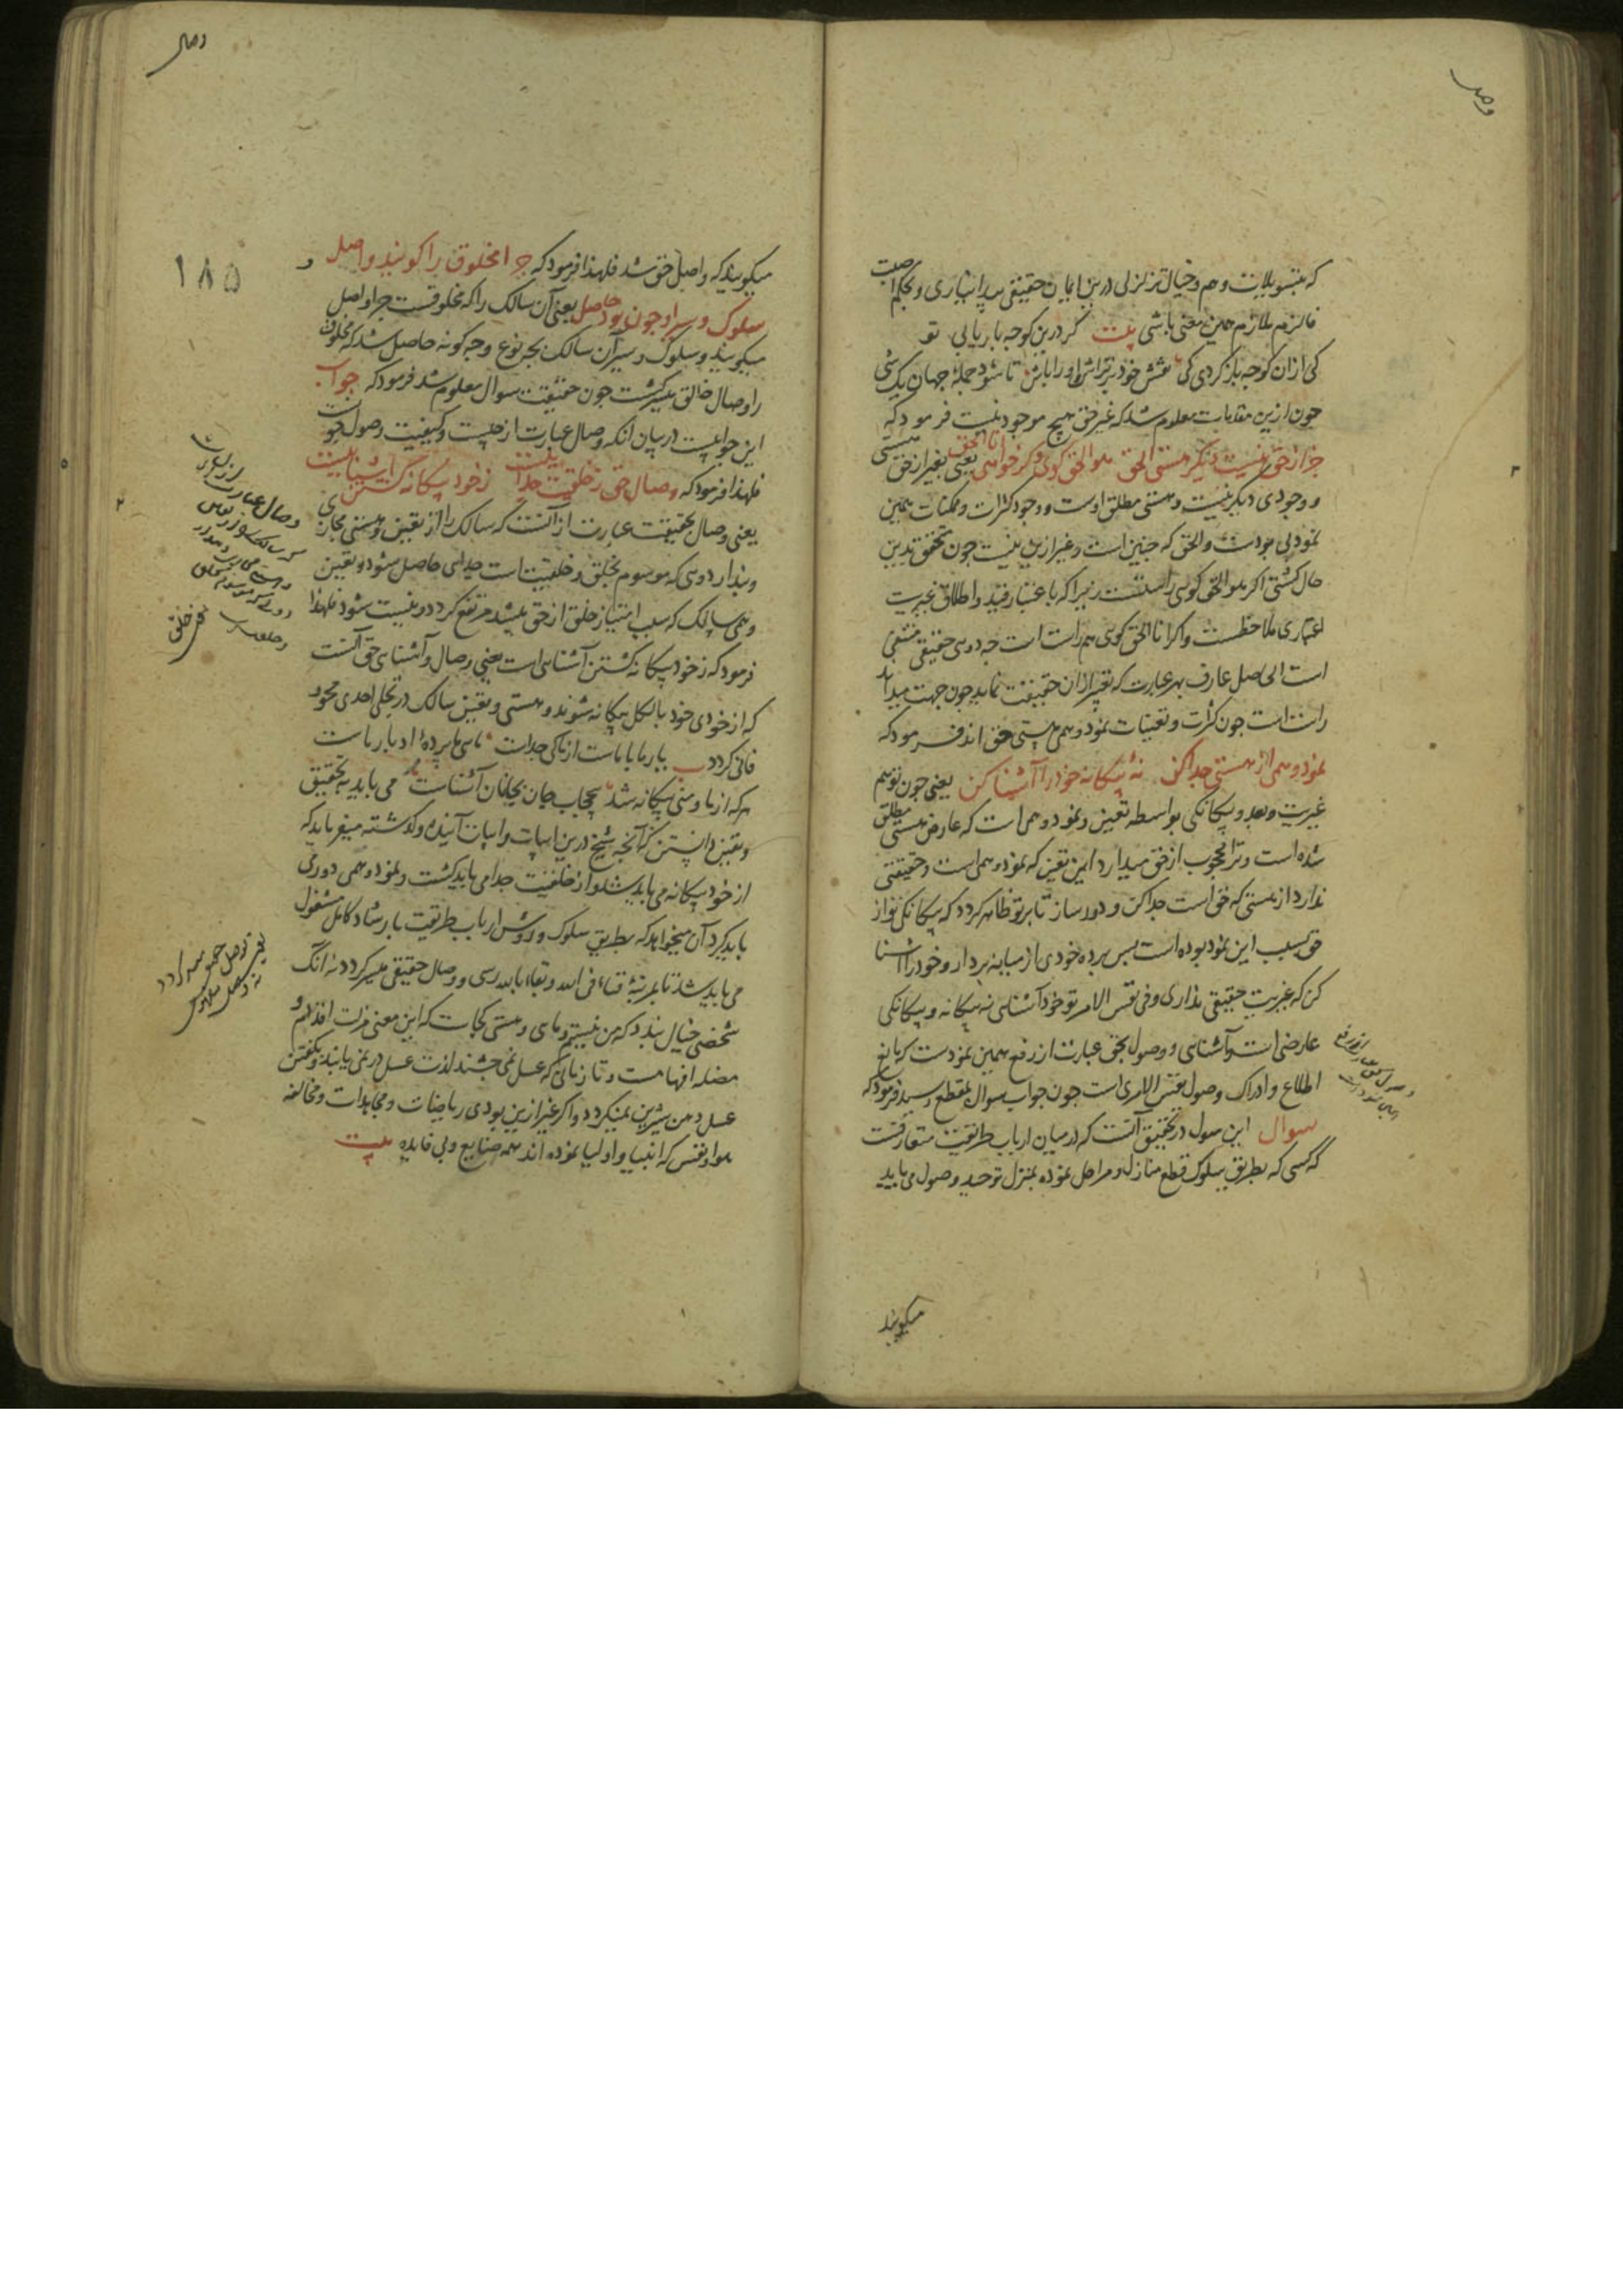 که بتسویلات وهم و خیال تزلزلی درین ایمان حقیقی پیدا نیاری و بحکم اصبت
فالزم ملازم همین معنی باشی بیت گر درین کوچه باریابی تو
کی ازان کوجه باز کردی کی نقش خود بتراش و او را باش تا شود جملهٔ جهان یک شی
جون ازین مقدمات معلوم شد که غیر حق هیچ موجود نیست فرمود که
جز از حق نیست دیگر هستی الحق هو الحق کوی و کر خواهی انا الحق یعنی بغیر از حق هستی
و وجودی دیگر نیست و هستی مطلق اوست و وجود کثرات و ممکنات همین
نمود بی بودست والحق که جنین است و غیر ازین نیست جون متحقق بدین
حال کشتی اکر هو الحق کویی راستست زیرا که باعتبار قید و اطلاق غیریت
اعتباری ملاحظست و اکر انا الحق کویی هم راست است جه دویی حقیقی منتفی
است الحاصل عارف بهر عبارت که تعبیر ازان حقیقت نماید جون جهت میداند
راست است جون کثرات و تعینات نمود وهمی هستی حق اند فرمود که
نمود وهمی از هستی جدا کن نهٔ بیکانه خود را آشنا کن یعنی جون توهم
غیریت و بعد و بیکانکی بواسطه تعین و نمود وهمی است که عارض هستی مطلق
شده است و ترا محجوب از حق میدارد این تعین که نمود وهمی است و حقیقتی
ندارد از هستی که حق است جدا کن و دور ساز تا بر تو ظاهر کردد که بیکانکی تو از
حق بسبب این نمود بوده است بس برده خودی از میانه بردار و خود را آشنا
کن که غیریت حقیقی نداری و فی نفس الامر تو خود آشنایی نه بیکانه و بیکانکی
عارضی است و آشنایی و وصول بحق عبارت از رفع همین نمودست که مانع
اطلاع و ادراک وصول نفس الامری است جون جواب سوال بمقطع رسید فرمود که
سوال این سوال در تحقیق آنست که در میان ارباب طریقت متعارفست
که کسی که بطریق سلوک قطع منازل و مراحل نموده بمنزل توحید وصول می یابد
میکویند
میکویند که واصل حق شد فلهذا فرمود که جرا مخلوق را کویند واصل و
سلوک و سیر او جون بود حاصل یعنی آن سالک را که مخلوقست جرا واصل
میکویند و سلوک و سیر آن سالک بجه نوع و جه کونه حاصل شد که مخلوق
را وصال خالق میسر کشت جون حقیقت سوال معلوم شد فرمود که جواب
این جوابیست در بیان آنکه وصال عبارت از جیست و کیفیت وصول
فلهذا فرمود که وصال حق ز خلقیت جداییست ز خود بیکانه گشتن آشناییست
یعنی وصال بحقیقت عبارت از آنست که سالک را از تعین و هستی مجازی
و بندار دویی که موسوم بخلق و خلقیت است جدایی حاصل شود و تعین
وهمی سالک که سبب امتیاز خلق از حق میشد مرتفع کردد و نیست شود فلهذا
فرمود که ز خود بیکانه کشتن آشنایی است یعنی وصال و آشنایی حق آنست
که از خودی خود بالکل بیکانه شوند و هستی و تعین سالک در تجلی احدی محو و
فانی کردد یار ما با ماست از ما کی جداست مایی ما پردهٔ ادبار ماست
هر که از ما و منی بیکانه شد بی حجاب جان بجانان آشناست می باید به تحقیق
و یقین دانستن که آنجه شیخ درین ابیات و ابیات آینده و کذشته میفرماید که
از خود بیکانه می باید شد و از خلقیت جدا می باید کشت و نمود وهمی دور می
باید کرد آن میخواهد که بطریق سلوک و روش ارباب طریقت بارشاد کامل مشغول
می باید شد تا بمرتبهٔ فناء فی الله و بقاء بالله رسی و وصال حقیقی میسر کردد نه آنک
شخصی خیال بندد که من نیستم و مایی و هستی کجاست که این معنی مزلت اقدام و
مضلهٔ افهامست و تا زمانی که عسل نمی جشند لذت عسل در نمی یابند و بکفتن
عسل دهن شیرین نمیکردد و اکر غیر ازین بودی ریاضات و مجاهدات و مخالفه
هوا و نفس که انبیا و اولیا نموده اند همه ضایع و بی فایده بیت
۱۸۵